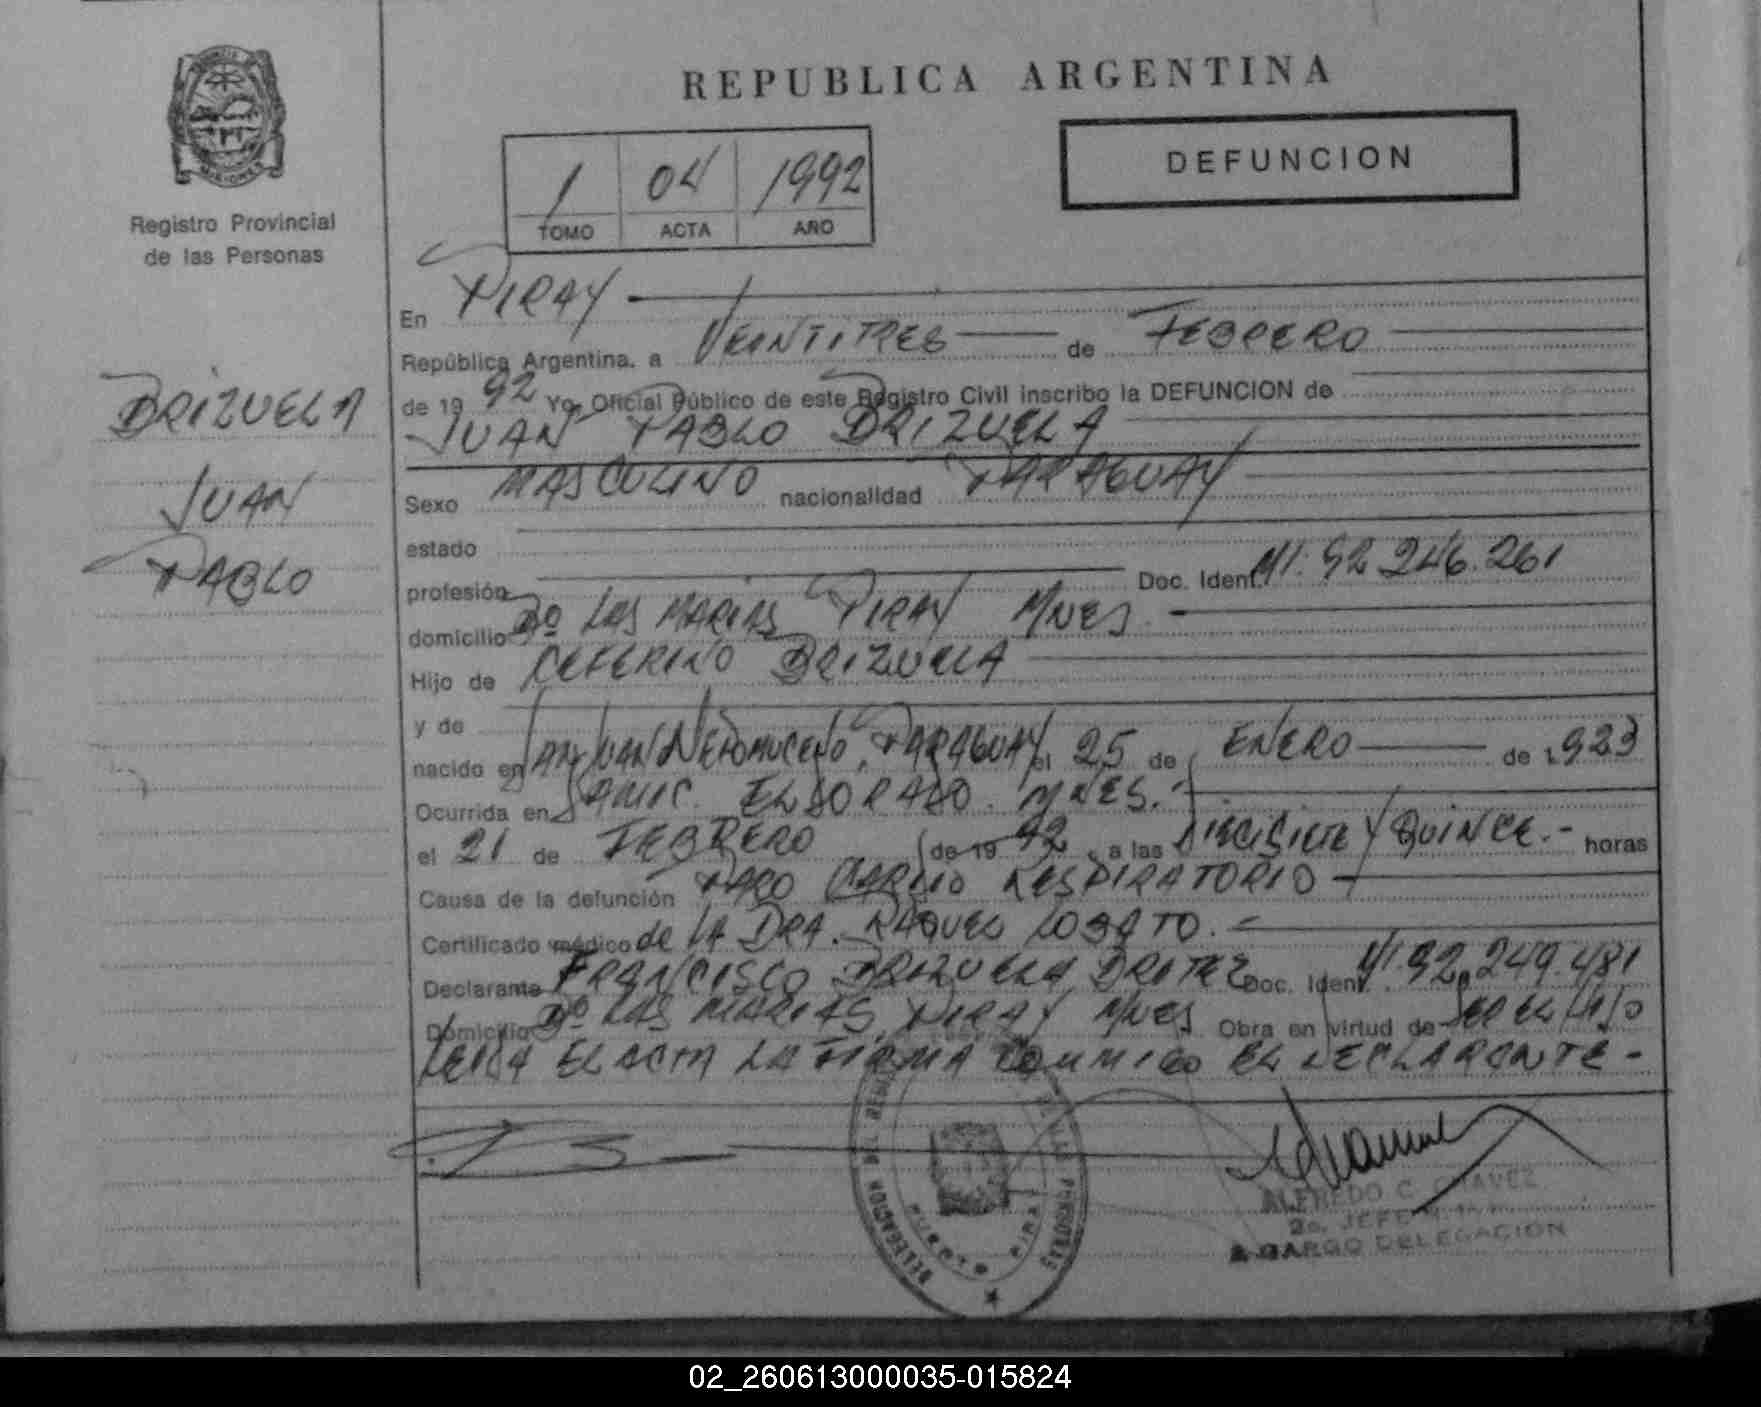 REPUBLICA ARGENTINA
DEFUNCION
1 04 1992
TOMO ACTA AÑO
MISIONES
Registro Provincial
de las Personas
BRIZUELA
JUAN
PABLO
En PIRAY
República Argentina, a VEINTITRES de FEBRERO
de 19 92 Yo, Oficial Público de este Registro Civil inscribo la DEFUNCION de
JUAN PABLO BRIZUELA
Sexo MASCULINO nacionalidad PARAGUAY
estado
profesión Doc. Ident. 92.246.261
domicilio Bº LAS MARIAS PIRAY MNES.
Hijo de CEFERINO BRIZUELA
y de
nacido en SAN JUAN NEPOMUCENO, PARAGUAY el 25 de ENERO de 1923
Ocurrida en SAMIC. ELDORADO. MNES.
el 21 de FEBRERO de 19 92, a las DIECISIETE Y QUINCE.- horas
Causa de la defunción PARO CARDIO RESPIRATORIO
Certificado médico de LA DRA. RAQUEL LOBATO.
Declarante FRANCISCO BRIZUELA Doc. Ident. 92.249.481
Domicilio Bº LAS MARIAS, PIRAY MNES Obra en virtud de SER EL HIJO
LEIDA EL ACTA LA FIRMA CONMIGO EL DECLARANTE-
DELEGACION
PUERTO PIRAY
DE LAS PERSONAS
ALFREDO C. CHAVEZ
2o. JEFE
A CARGO DELEGACION
02_260613000035-015824